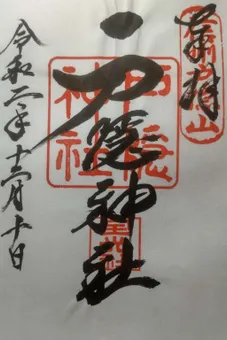 奉拝
戸隠神社
令和二年十二月十日
戸隠
神社